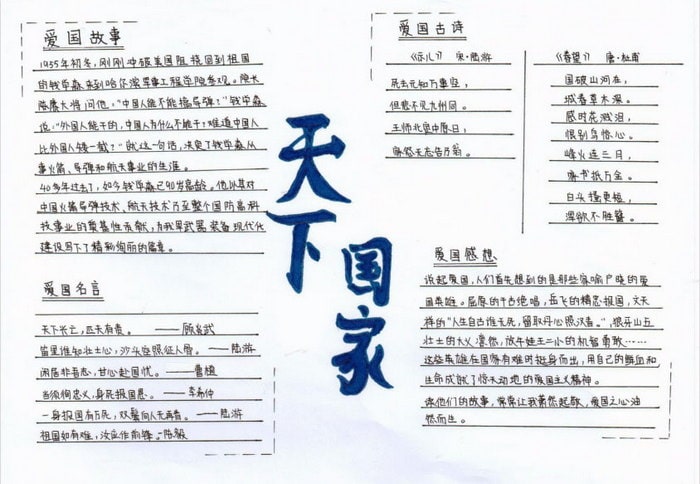 爱国故事
1955年初冬，刚刚冲破美国阻挠回到祖国
的钱学森来到哈尔滨军事工程学院参观。院长
陈赓大将问他：“中国人能不能搞导弹？”钱学森
说：“外国人能干的，中国人为什么不能干？难道中国人
比外国人矮一截？”就这一句话，决定了钱学森从
事火箭、导弹和航天事业的生涯。
40多年过去了，如今钱学森已90岁高龄。他以其对
中国火箭导弹技术、航天技术乃至整个国防高科
技事业的奠基性贡献，为我军武器装备现代化
建设写下了精彩绚丽的篇章。
爱国名言
天下兴亡，匹夫有责。——顾炎武
岂里谁知壮士心，沙头空照征人骨。——陆游
闲居非吾志，甘心赴国忧。——曹植
百须徇忠义，身死报国恩。——李希仲
一身报国有万死，双鬓向人无再青。——陆游
祖国如有难，汝应作前锋。——陈毅
天下
国家
爱国古诗
《示儿》 宋·陆游
死去元知万事空，
但悲不见九州同。
王师北定中原日，
家祭无忘告乃翁。
《春望》 唐·杜甫
国破山河在，
城春草木深。
感时花溅泪，
恨别鸟惊心。
峰火连三月，
家书抵万金。
白头搔更短，
浑欲不胜簪。
爱国感想
说起爱国，人们首先想到的是那些家喻户晓的爱
国英雄。屈原的千古绝唱，岳飞的精忠报国，文天
祥的“人生自古谁无死，留取丹心照汗青。”，狼牙山五
壮士的大义凛然，放牛娃王二小的机智勇敢……
这些英雄在国家有难时挺身而出，用自己的鲜血和
生命成就了惊天动地的爱国主义精神。
读他们的故事，常常让我肃然起敬，爱国之心油
然而生。